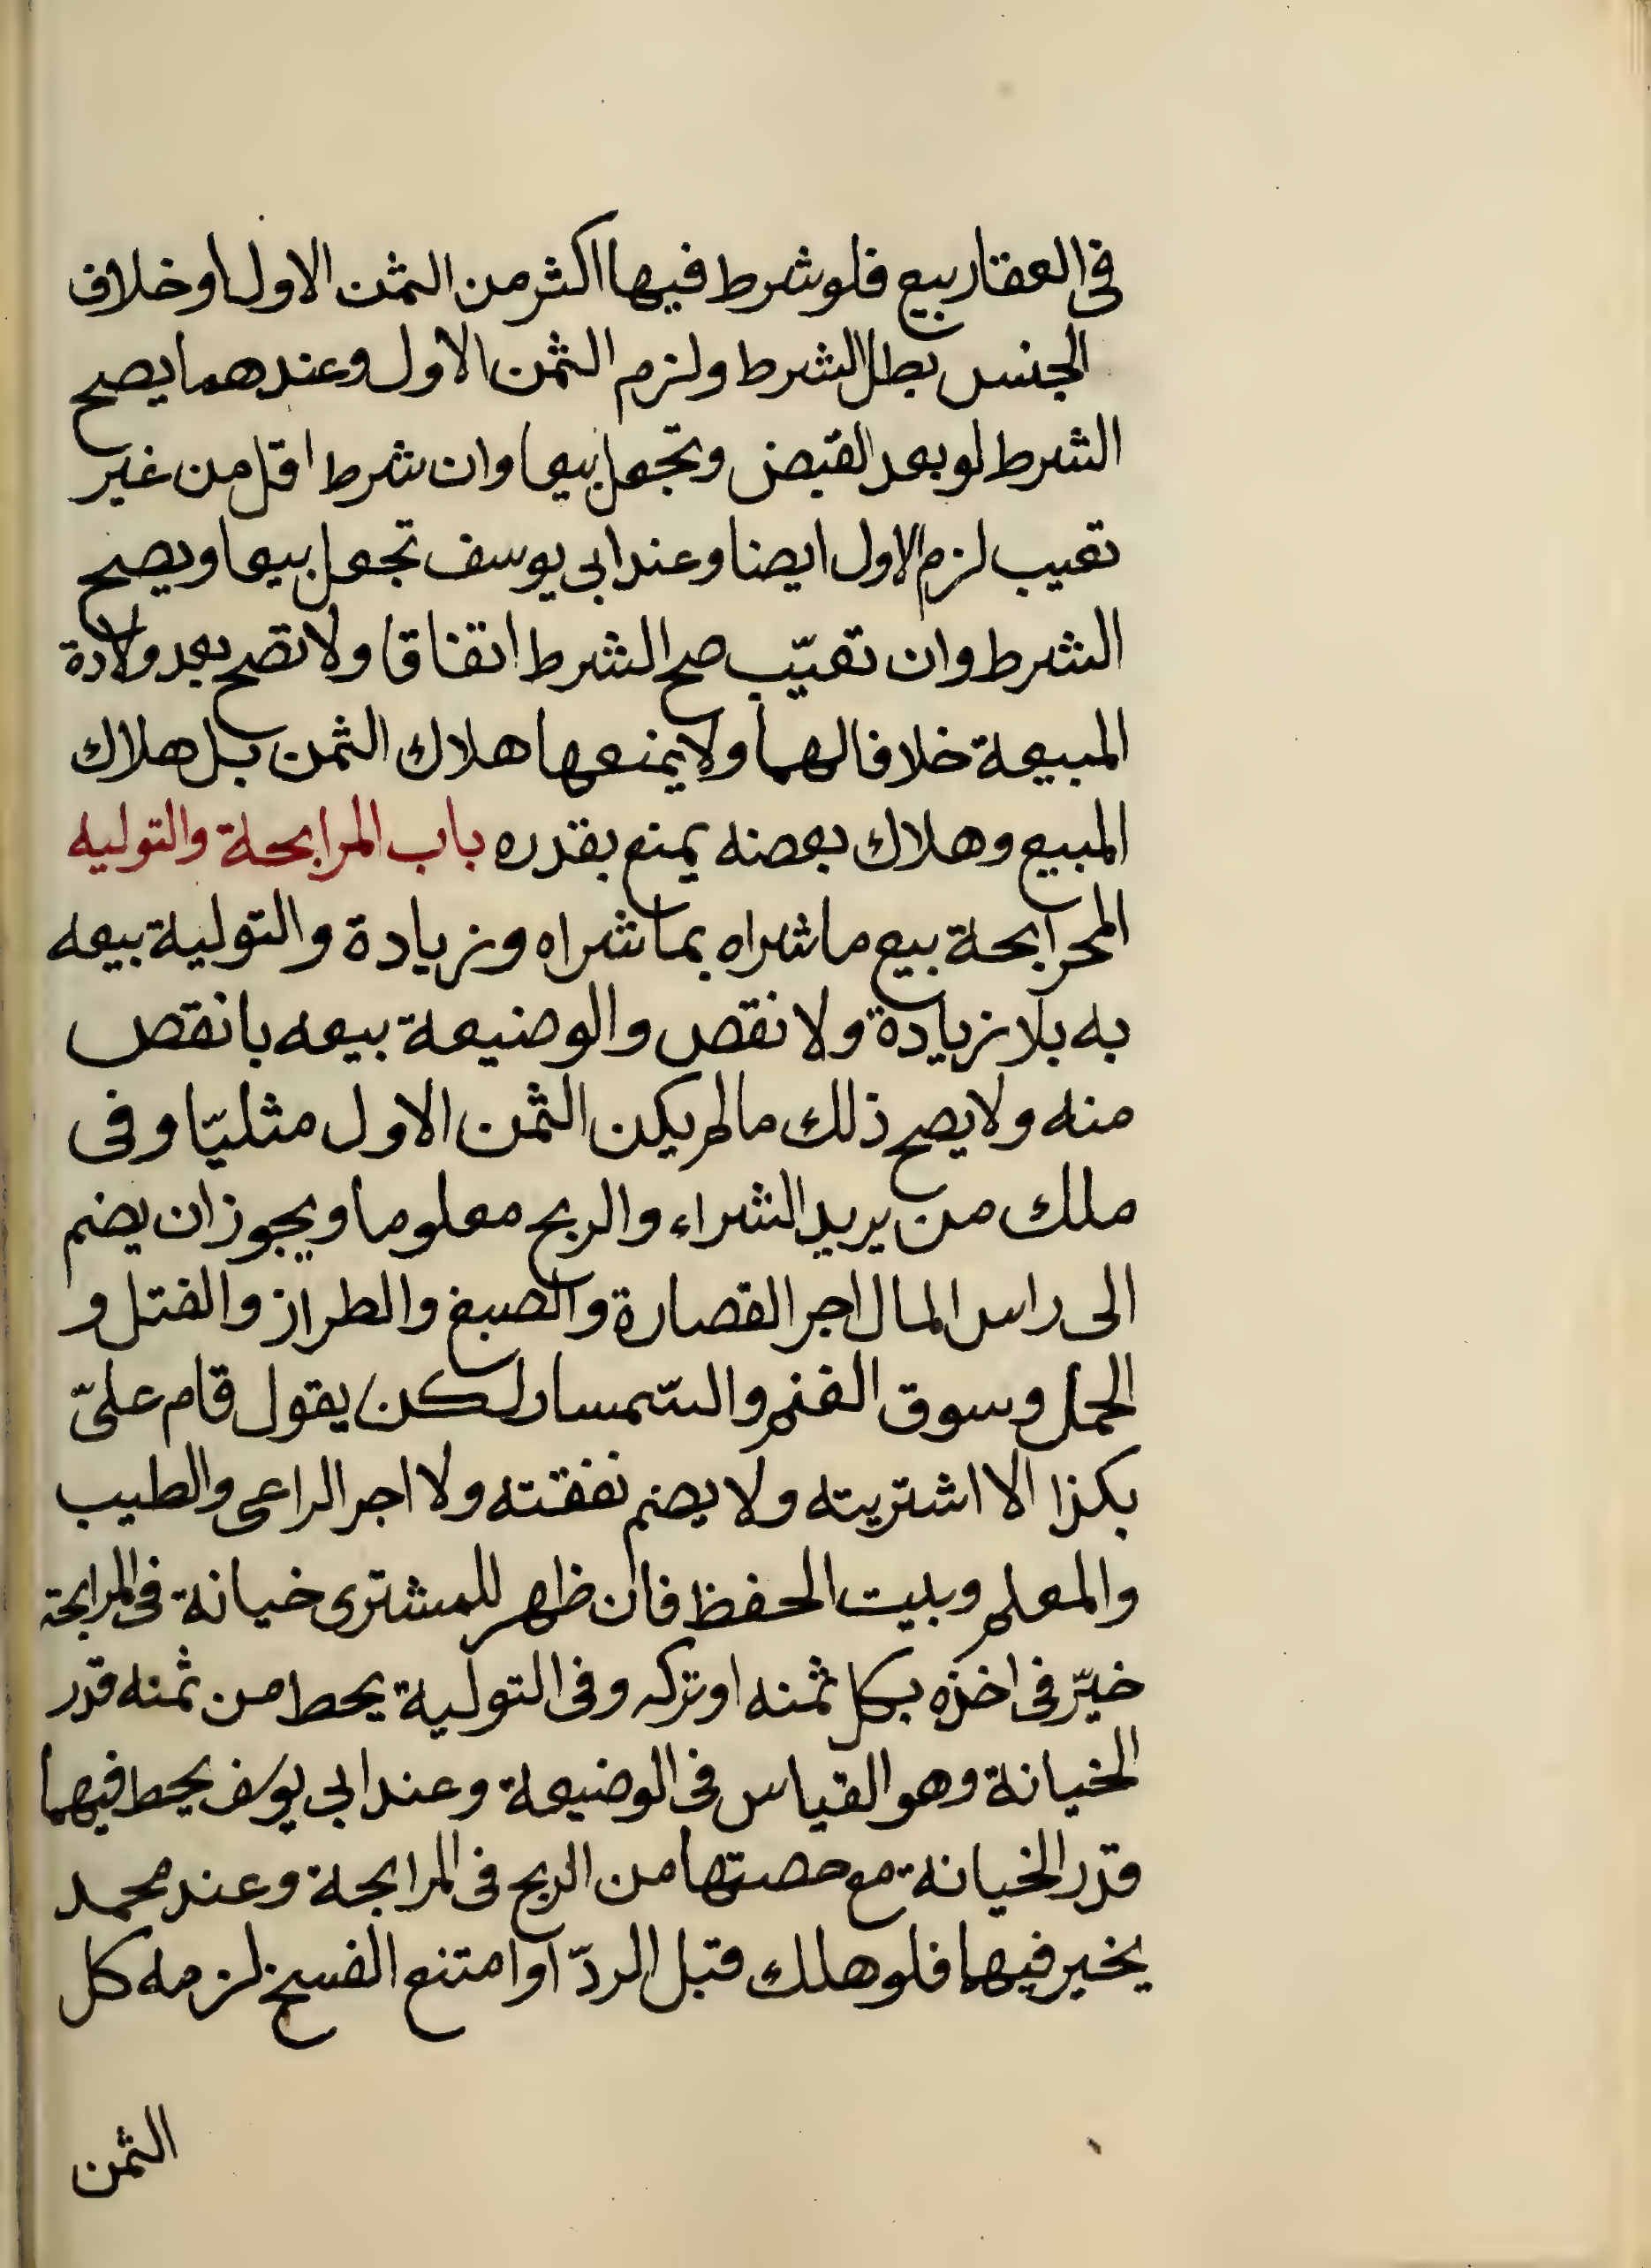 فى العقار بيع فلو شرط فيها اكثر من الثمن الاول او خلاف
الجنس بطل الشرط ولزم الثمن الاول وعندهما يصح
الشرط لو بعد القبض وتجعل بيعا وان شرط اقل من غير
تعيب لزم الاول ايضا وعند ابى يوسف تجعل بيعا ويصح
الشرط وان تعيّب صح الشرط اتفاقا ولا تصح بعد ولادة
المبيعة خلافا لهما ولا يمنعها هلاك الثمن بل هلاك
المبيع وهلاك بعضه يمنع بقدره باب المرابحة والتوليه
المرابحة بيع ما شراه بما شراه وزيادة والتولية بيعه
به بلا زيادة ولا نقص والوضيعة بيعه بانقص
منه ولا يصح ذلك مالم يكن الثمن الاول مثليّا وفى
ملك من يريد الشراء والربح معلوما ويجوز ان يضم
الى راس المال اجر القصارة والصبغ والطراز والفتل و
الحمل وسوق الغنم والسّمسار لكن يقول قام علىّ
بكذا الا اشتريته ولا يضم نفقته ولا اجر الراعى والطبيب
والمعلم وبيت الحفظ فان ظهر للمشترى خيانة فى المرابحة
خيّر فى اخذه بكل ثمنه او تركه وفى التولية يحط من ثمنه قدر
الخيانة وهو القياس فى الوضيعة وعند ابى يوسف يحط فيهما
قدر الخيانة مع حصتها من الربح فى المرابحة وعند محمد
يخير فيهما فلو هلك قبل الردّ او امتنع الفسخ لزمه كل
الثمن